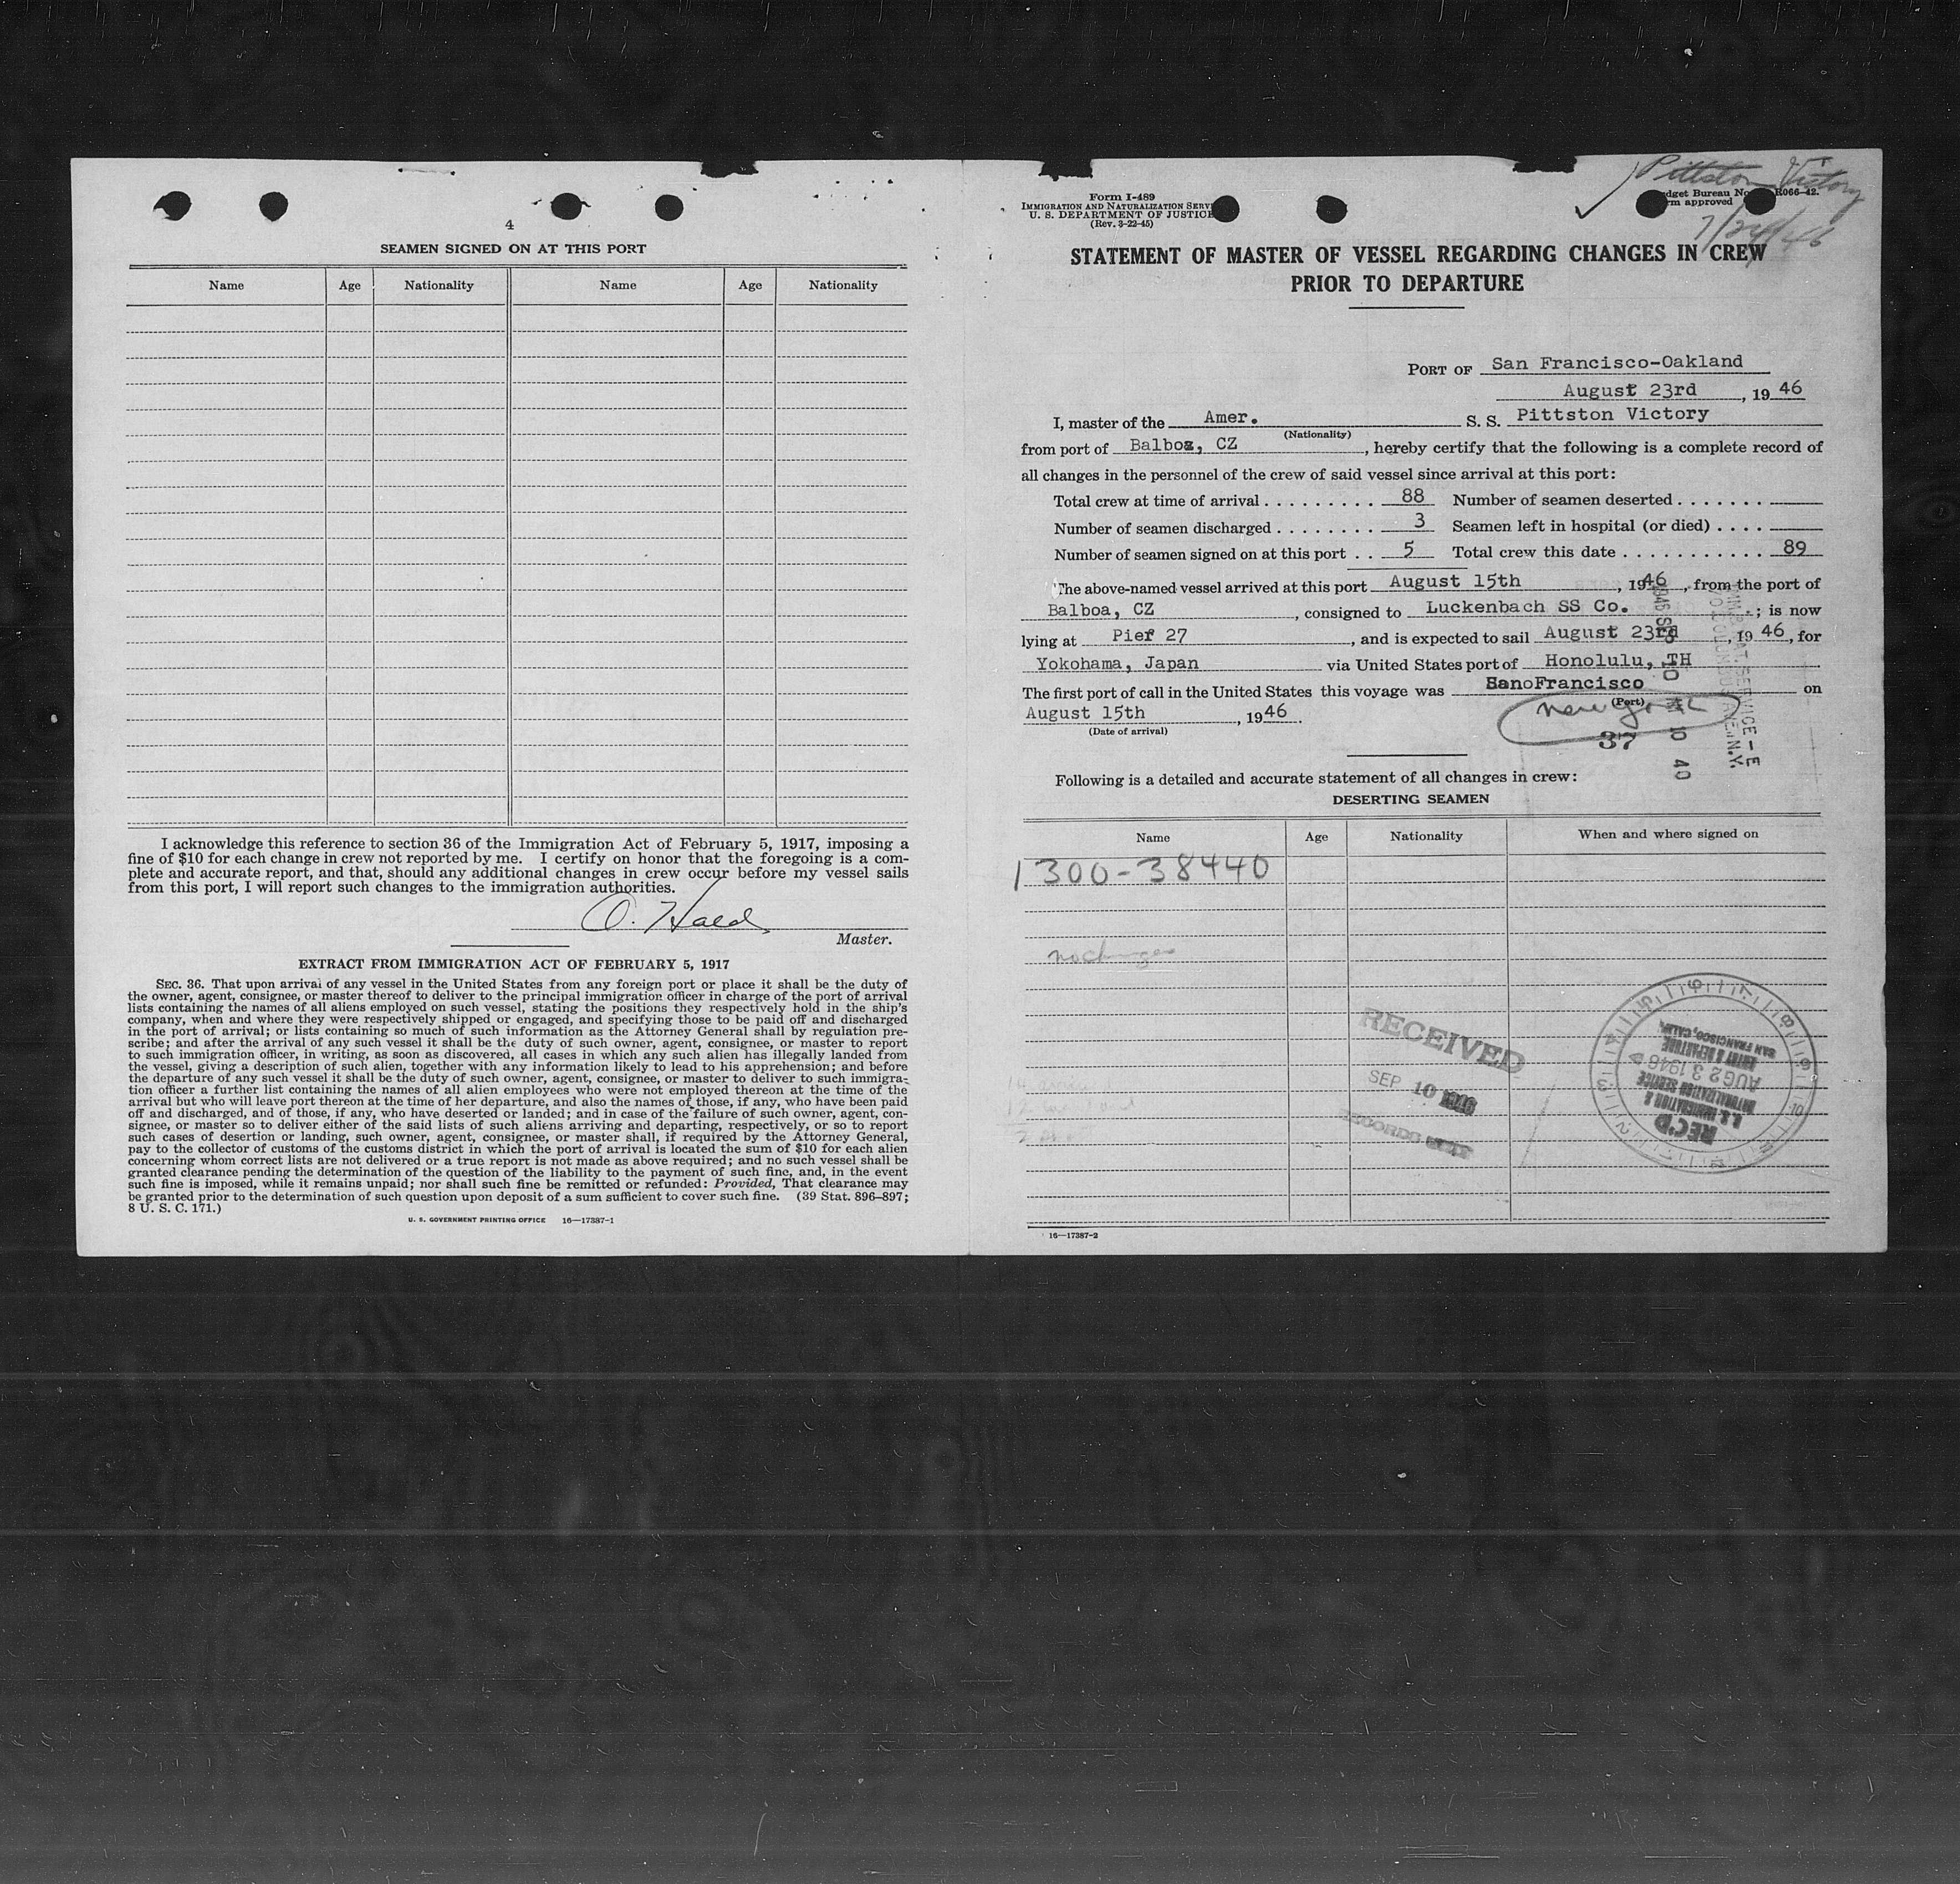 4
SEAMEN SIGNED ON AT THIS PORT
Name Age Nationality Name Age Nationality
I acknowledge this reference to section 36 of the Immigration Act of February 5, 1917, imposing a
fine of $10 for each change in crew not reported by me. I certify on honor that the foregoing is a com-
plete and accurate report, and that, should any additional changes in crew occur before my vessel sails
from this port, I will report such changes to the immigration authorities.
O. Hald
Master.
EXTRACT FROM IMMIGRATION ACT OF FEBRUARY 5, 1917
SEC. 36. That upon arrival of any vessel in the United States from any foreign port or place it shall be the duty of
the owner, agent, consignee, or master thereof to deliver to the principal immigration officer in charge of the port of arrival
lists containing the names of all aliens employed on such vessel, stating the positions they respectively hold in the ship's
company, when and where they were respectively shipped or engaged, and specifying those to be paid off and discharged
in the port of arrival; or lists containing so much of such information as the Attorney General shall by regulation pre-
scribe; and after the arrival of any such vessel it shall be the duty of such owner, agent, consignee, or master to report
to such immigration officer, in writing, as soon as discovered, all cases in which any such alien has illegally landed from
the vessel, giving a description of such alien, together with any information likely to lead to his apprehension; and before
the departure of any such vessel it shall be the duty of such owner, agent, consignee, or master to deliver to such immigra-
tion officer a further list containing the names of all alien employees who were not employed thereon at the time of the
arrival but who will leave port thereon at the time of her departure, and also the names of those, if any, who have been paid
off and discharged, and of those, if any, who have deserted or landed; and in case of the failure of such owner, agent, con-
signee, or master so to deliver either of the said lists of such aliens arriving and departing, respectively, or so to report
such cases of desertion or landing, such owner, agent, consignee, or master shall, if required by the Attorney General,
pay to the collector of customs of the customs district in which the port of arrival is located the sum of $10 for each alien
concerning whom correct lists are not delivered or a true report is not made as above required; and no such vessel shall be
granted clearance pending the determination of the question of the liability to the payment of such fine, and, in the event
such fine is imposed, while it remains unpaid; nor shall such fine be remitted or refunded: Provided, That clearance may
be granted prior to the determination of such question upon deposit of a sum sufficient to cover such fine. (39 Stat. 896–897;
8 U. S. C. 171.)
U. S. GOVERNMENT PRINTING OFFICE 16—17387-1
Pittston Victory
7/24/46
Form I-489
IMMIGRATION AND NATURALIZATION SERV
U. S. DEPARTMENT OF JUSTICE
(Rev. 3-22-45)
dget Bureau No. R066-42.
rm approved
STATEMENT OF MASTER OF VESSEL REGARDING CHANGES IN CREW
PRIOR TO DEPARTURE
PORT OF San Francisco-Oakland
August 23rd, 1946
I, master of the Amer. S. S. Pittston Victory
(Nationality)
from port of Balboa, CZ, hereby certify that the following is a complete record of
all changes in the personnel of the crew of said vessel since arrival at this port:
Total crew at time of arrival . . . . . . . . . 88 Number of seamen deserted . . . . . . .
Number of seamen discharged . . . . . . . . 3 Seamen left in hospital (or died) . . . .
Number of seamen signed on at this port . . 5 Total crew this date . . . . . . . . . . . 89
The above-named vessel arrived at this port August 15th, 1946, from the port of
Balboa, CZ, consigned to Luckenbach SS Co. ; is now
lying at Pier 27, and is expected to sail August 23rd, 1946, for
Yokohama, Japan via United States port of Honolulu, TH
The first port of call in the United States this voyage was SanoFrancisco on
(Port)
August 15th, 1946.
(Date of arrival)
New York
37
1946 SEP 10 10 40
Following is a detailed and accurate statement of all changes in crew:
DESERTING SEAMEN
Name Age Nationality When and where signed on
1300-38440
no changes
RECEIVED
SEP 10 1946
RECORDS
REC'D
U. S. IMMIGRATION &
NATURALIZATION SERVICE
AUG 23 1946
ENTRY & DEPARTURE
SAN FRANCISCO, CALIF.
16—17387-2